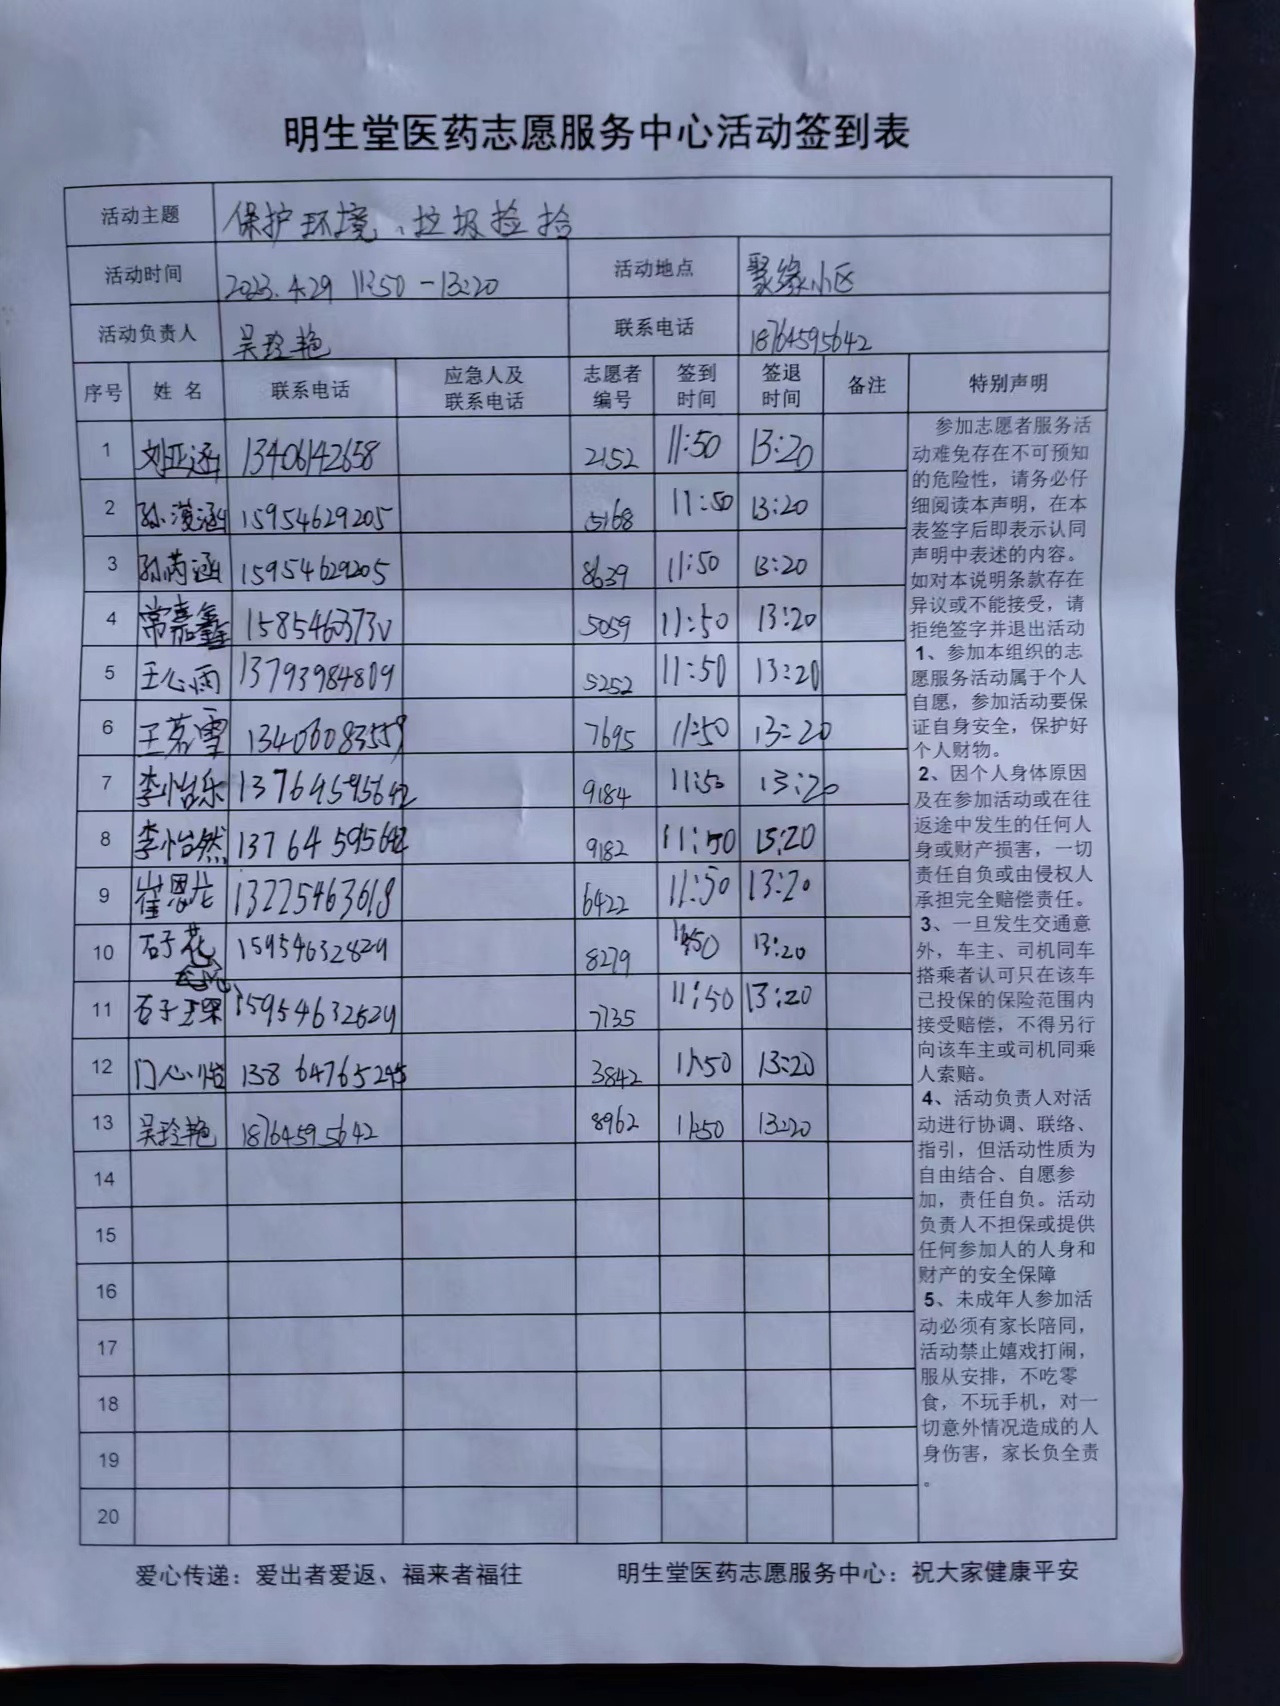 明生堂医药志愿服务中心活动签到表
活动主题 保护环境、垃圾捡拾
活动时间 2023.4.29 11:50-13:20 活动地点 聚缘小区
活动负责人 吴玲艳 联系电话 18764595642
序号 姓名 联系电话 应急人及联系电话 志愿者编号 签到时间 签退时间 备注 特别声明
1 刘亚涵 13406142658 2152 11:50 13:20
2 孙漫涵 15954629205 5168 11:50 13:20
3 孙芮涵 15954629205 8639 11:50 13:20
4 常嘉鑫 5059 11:50 13:20
5 王心雨 13793984809 5252 11:50 13:20
6 王若雪 13406083559 7695 11:50 13:20
7 李怡乐 13764595642 9184 11:50 13:20
8 李怡然 13764595642 9182 11:50 13:20
9 崔恩龙 13225463618 6422 11:50 13:20
10 石子花 15954632829 8279 11:50 13:20
11 石子琛 7135 11:50 13:20
12 门心怡 3842 11:50 13:20
13 吴玲艳 18764595642 8962 11:50 13:20
14
15
16
17
18
19
20
参加志愿者服务活
动难免存在不可预知
的危险性，请务必仔
细阅读本声明，在本
表签字后即表示认同
声明中表述的内容。
如对本说明条款存在
异议或不能接受，请
拒绝签字并退出活动
1、参加本组织的志
愿服务活动属于个人
自愿，参加活动要保
证自身安全，保护好
个人财物。
2、因个人身体原因
及在参加活动或在往
返途中发生的任何人
身或财产损害，一切
责任自负或由侵权人
承担完全赔偿责任。
3、一旦发生交通意
外，车主、司机同车
搭乘者认可只在该车
已投保的保险范围内
接受赔偿，不得另行
向该车主或司机同乘
人索赔。
4、活动负责人对活
动进行协调、联络、
指引，但活动性质为
自由结合、自愿参
加，责任自负。活动
负责人不担保或提供
任何参加人的人身和
财产的安全保障
5、未成年人参加活
动必须有家长陪同，
活动禁止嬉戏打闹，
服从安排，不吃零
食，不玩手机，对一
切意外情况造成的人
身伤害，家长负全责
。
爱心传递：爱出者爱返、福来者福往 明生堂医药志愿服务中心：祝大家健康平安